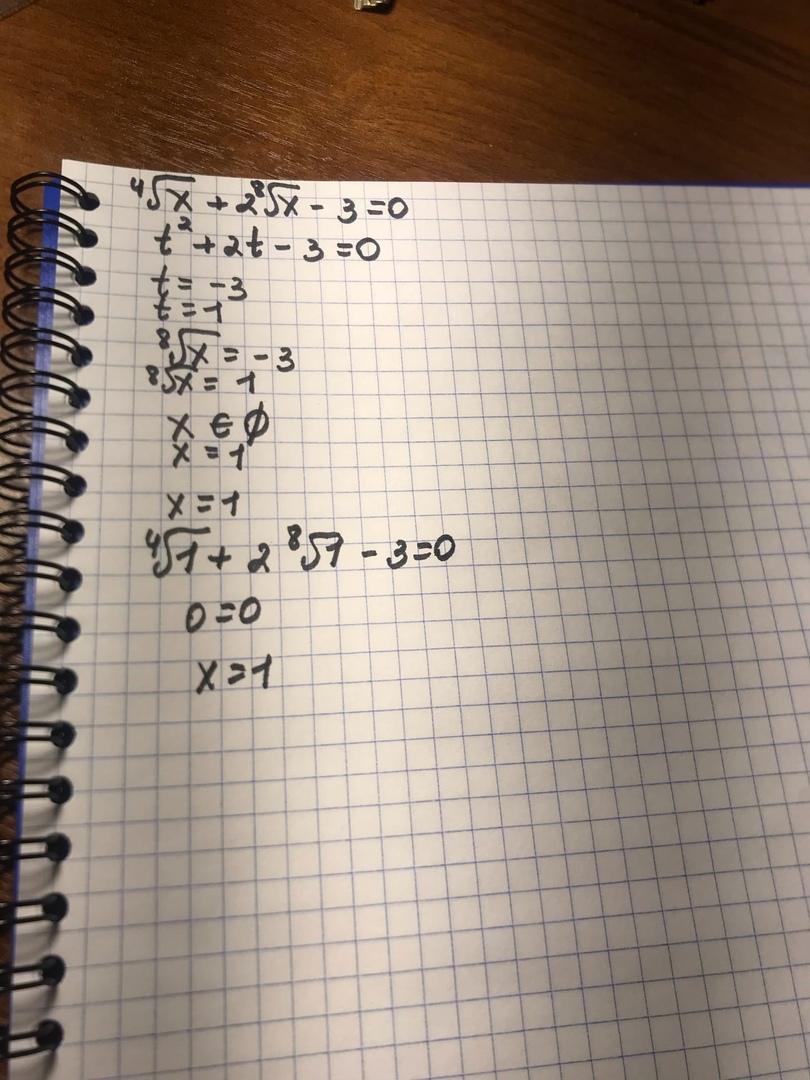 ⁴√x + 2⁸√x - 3 = 0
t² + 2t - 3 = 0
t = -3
t = 1
⁸√x = -3
⁸√x = 1
x ∈ ∅
x = 1
x = 1
⁴√1 + 2 ⁸√1 - 3 = 0
0 = 0
x = 1